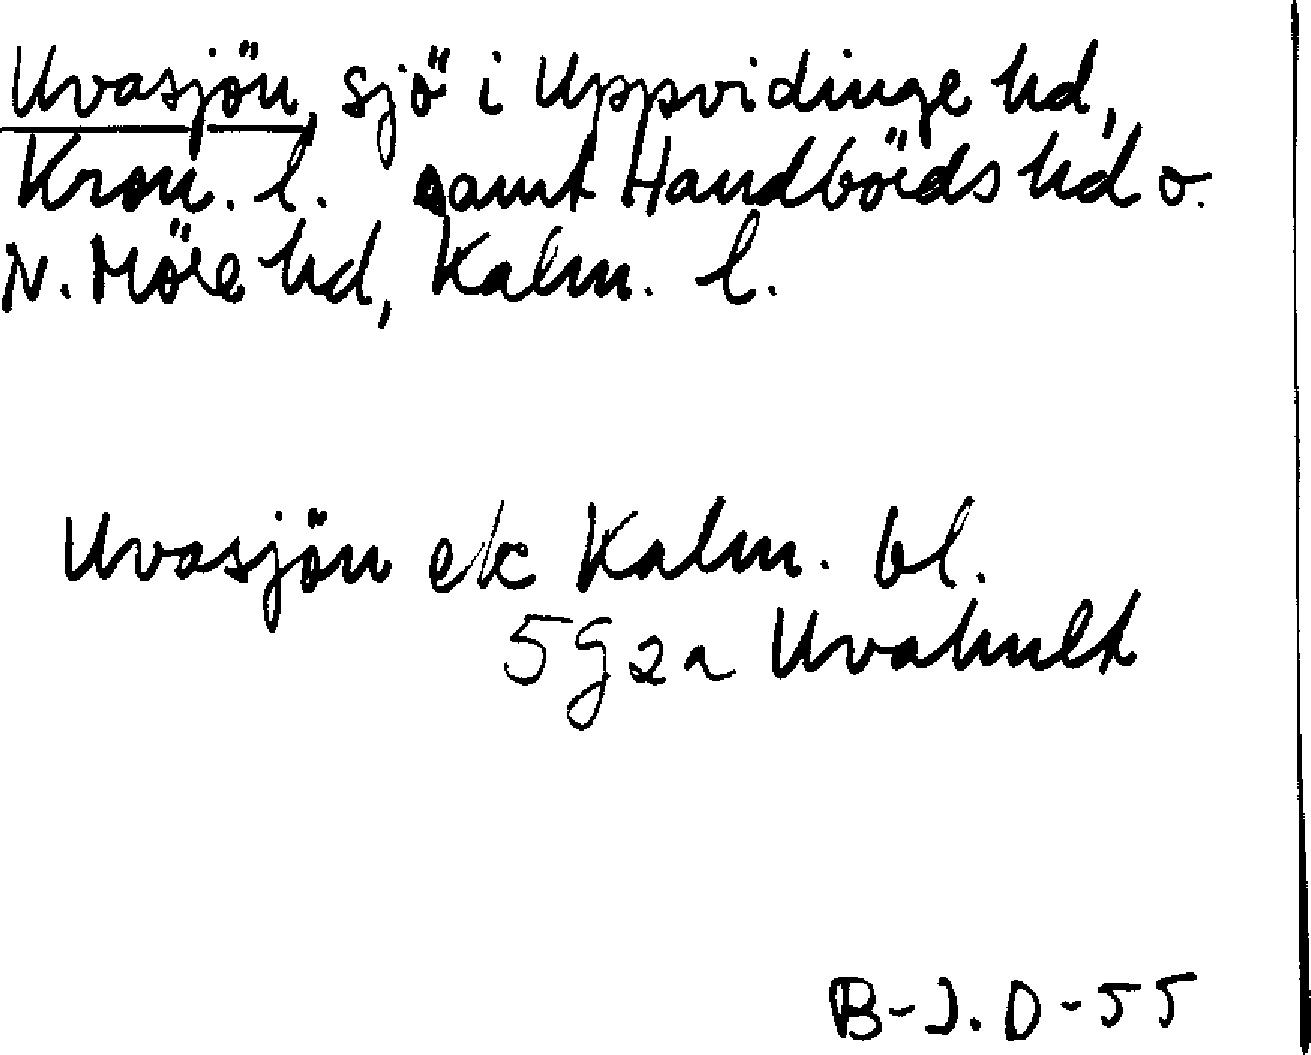 Uvasjön, sjö i Uppvidinge hd,
Kron. l. samt Handbörds hd o.
N. Möre hd, Kalm. l.
Uvasjön ek Kalm. bl.
5 G 2 a Uvahult
B-J. D-55